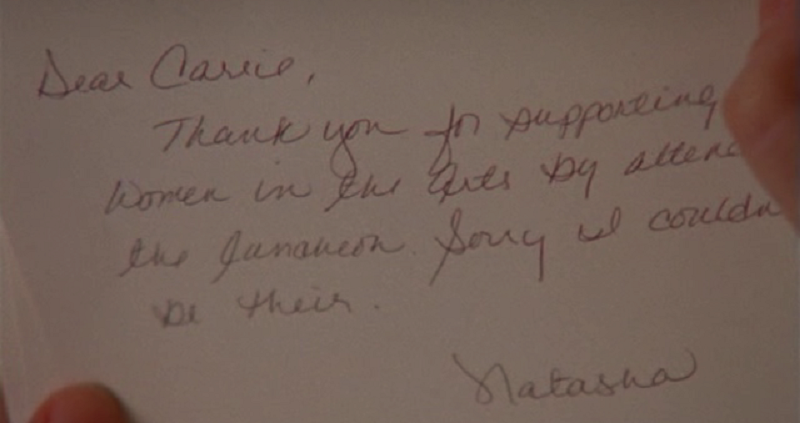 Dear Carrie,
Thank you for supporting
Women in the Arts by atten
the lunancheon. Sorry I couldn
be their.
Natasha